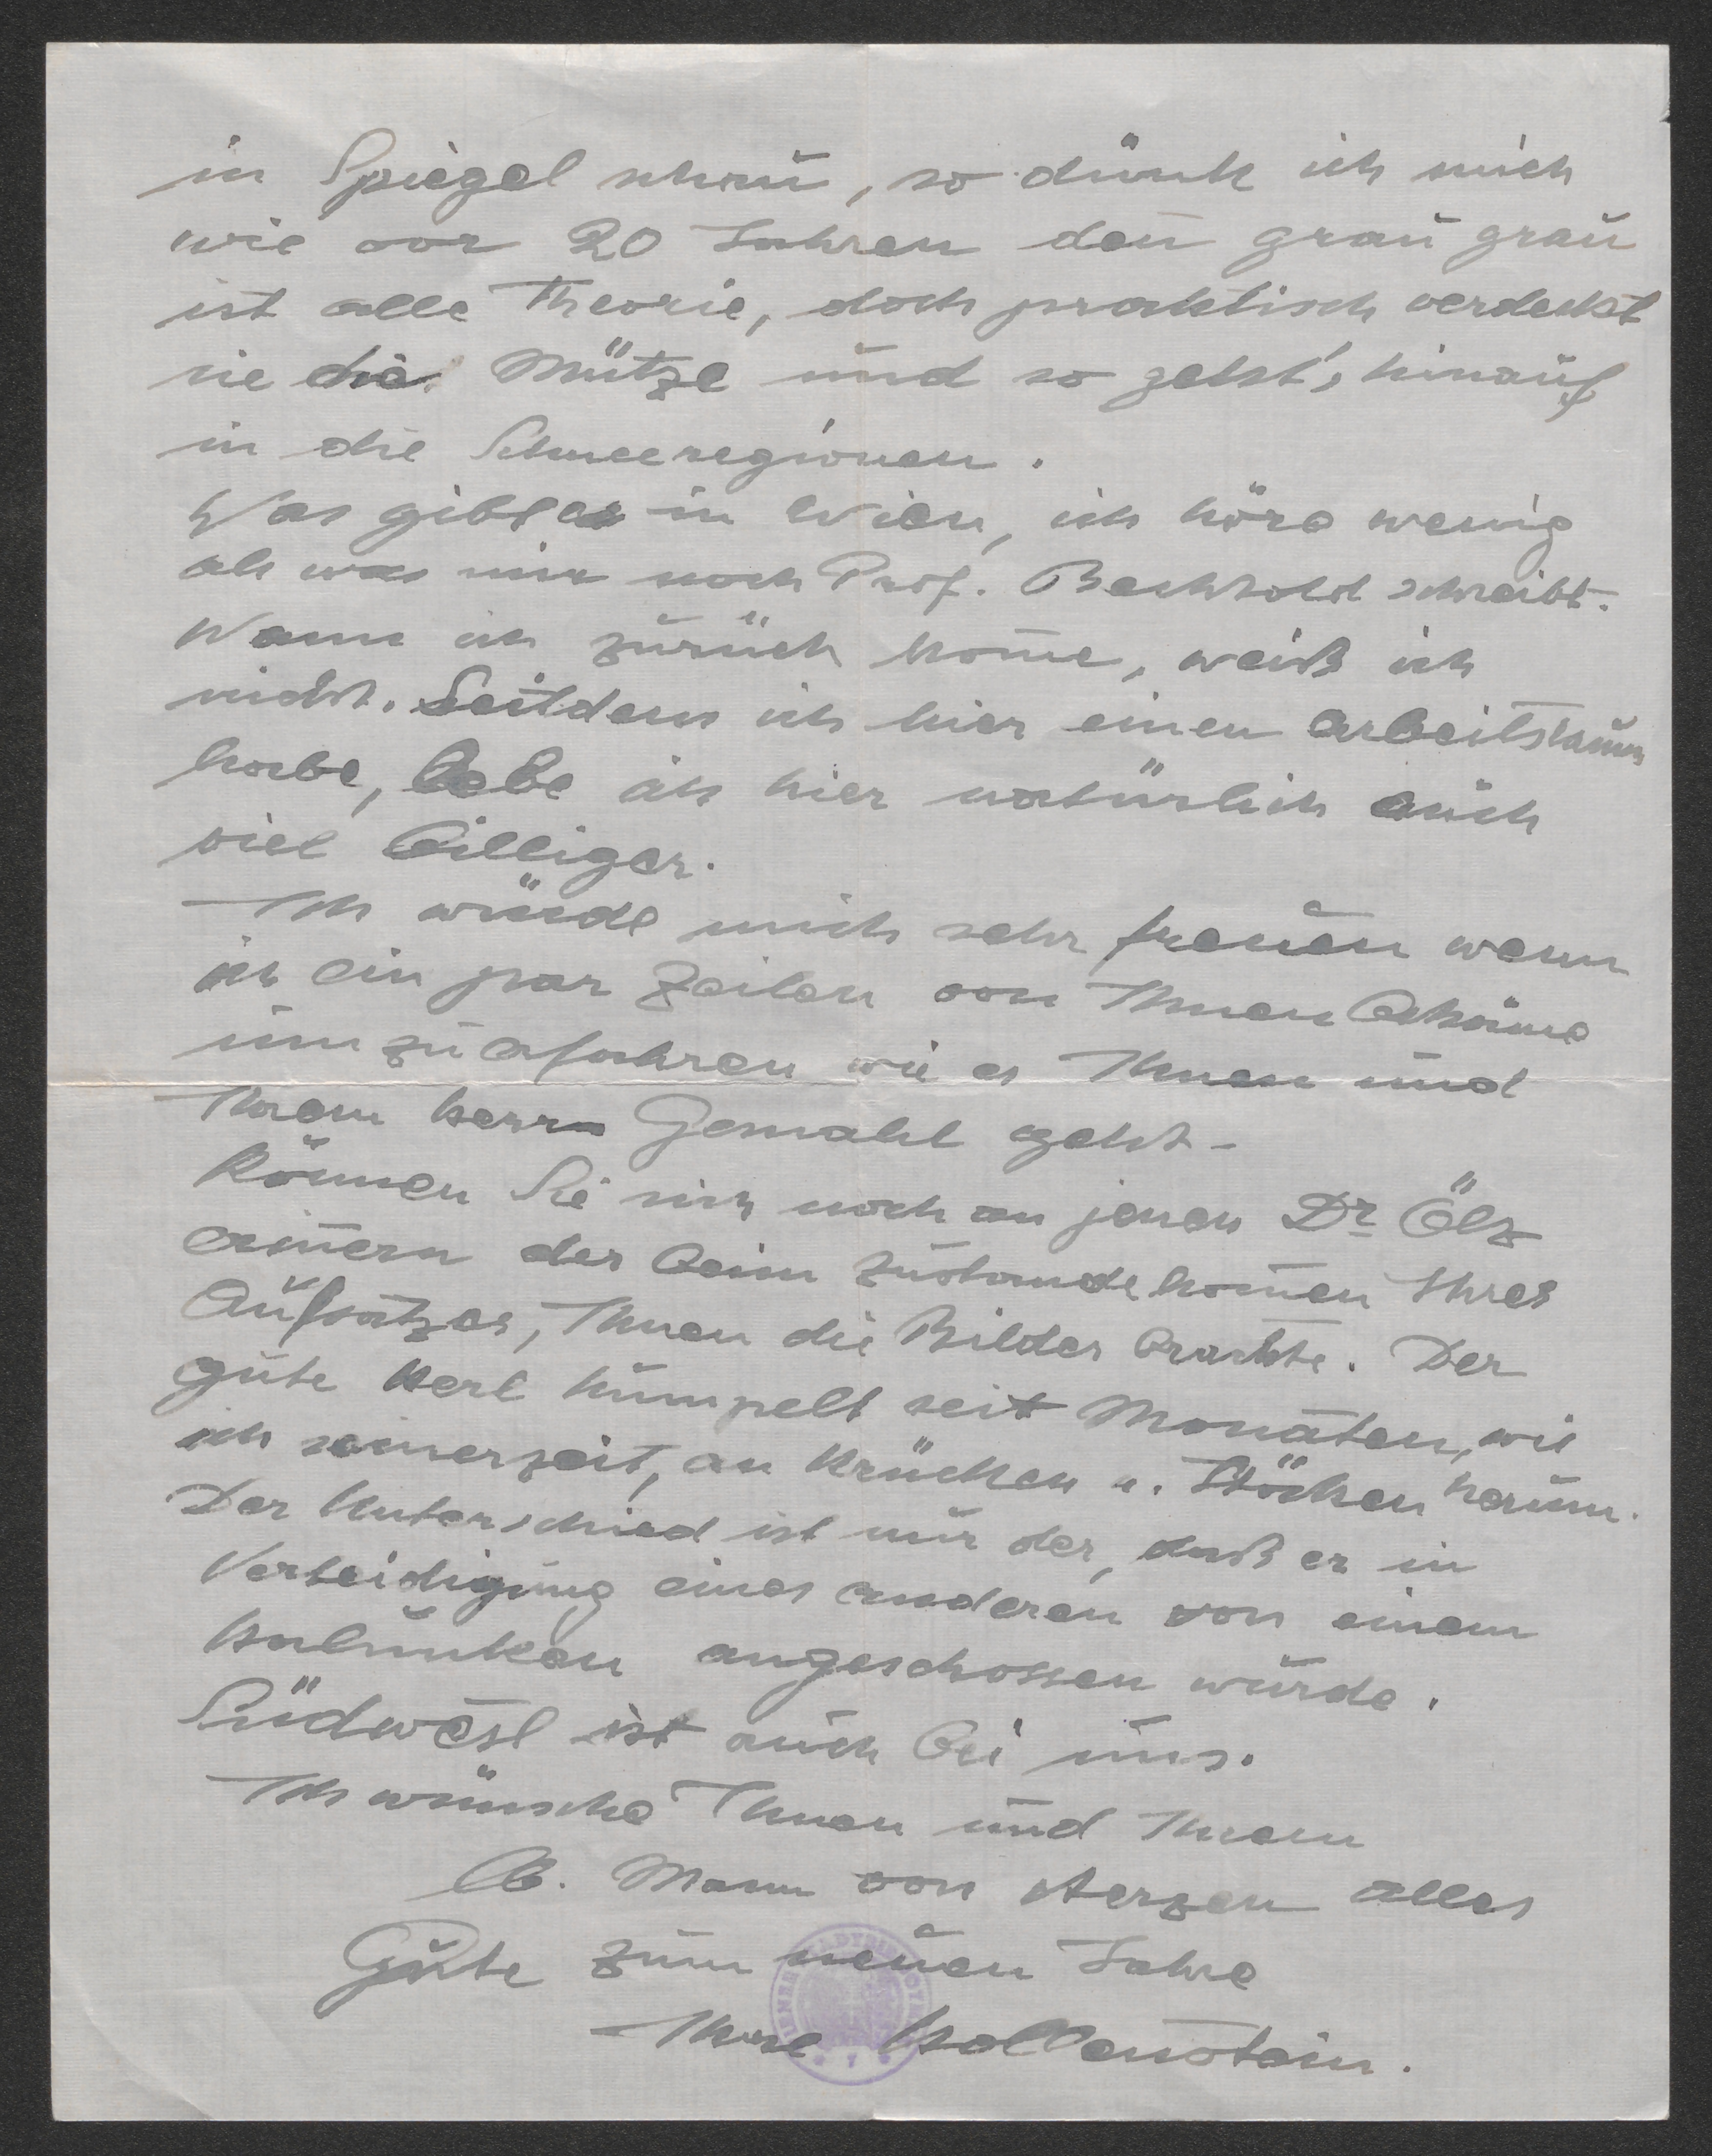 in Spiegel schau, so dünk ich mich
wie vor 20 Jahren den̄ grau grau
ist alle Theorie, doch praktisch verdeckt
sie die Mütze und so geht's hinauf
in die Schneeregionen.
Was gibt es in Wien, ich höre wenig
als was mir noch Prof. Bechtold schreibt.
Wann ich zurück kom̄e, weiß ich
nicht. Seitdem ich hier einen Arbeitsraum
habe, lebe ich hier natürlich auch
viel billiger.
Ich würde mich sehr freuen wenn
ich ein par Zeilen von Ihnen bekäme
um zu erfahren wie es Ihnen und
Ihrem Herrn Gemahl geht –
Können Sie sich noch an jenen Dr Ölz
erin̄ern der beim Zustandekom̄en Ihres
Aufsatzes, Ihnen die Bilder brachte. Der
gute Kerl humpelt seit Monaten, wie
ich seinerzeit, an Krücken u. Stöcken herum.
Der Unterschied ist nur der, daß er in
Verteidigung eines anderen von einem
Halunken angeschossen wurde.
Südwest ist auch bei uns.
Ich wünsche Ihnen und Ihrem
lb. Mann von Herzen alles
Gute zum neuen Jahre
Ihre Hollenstein.